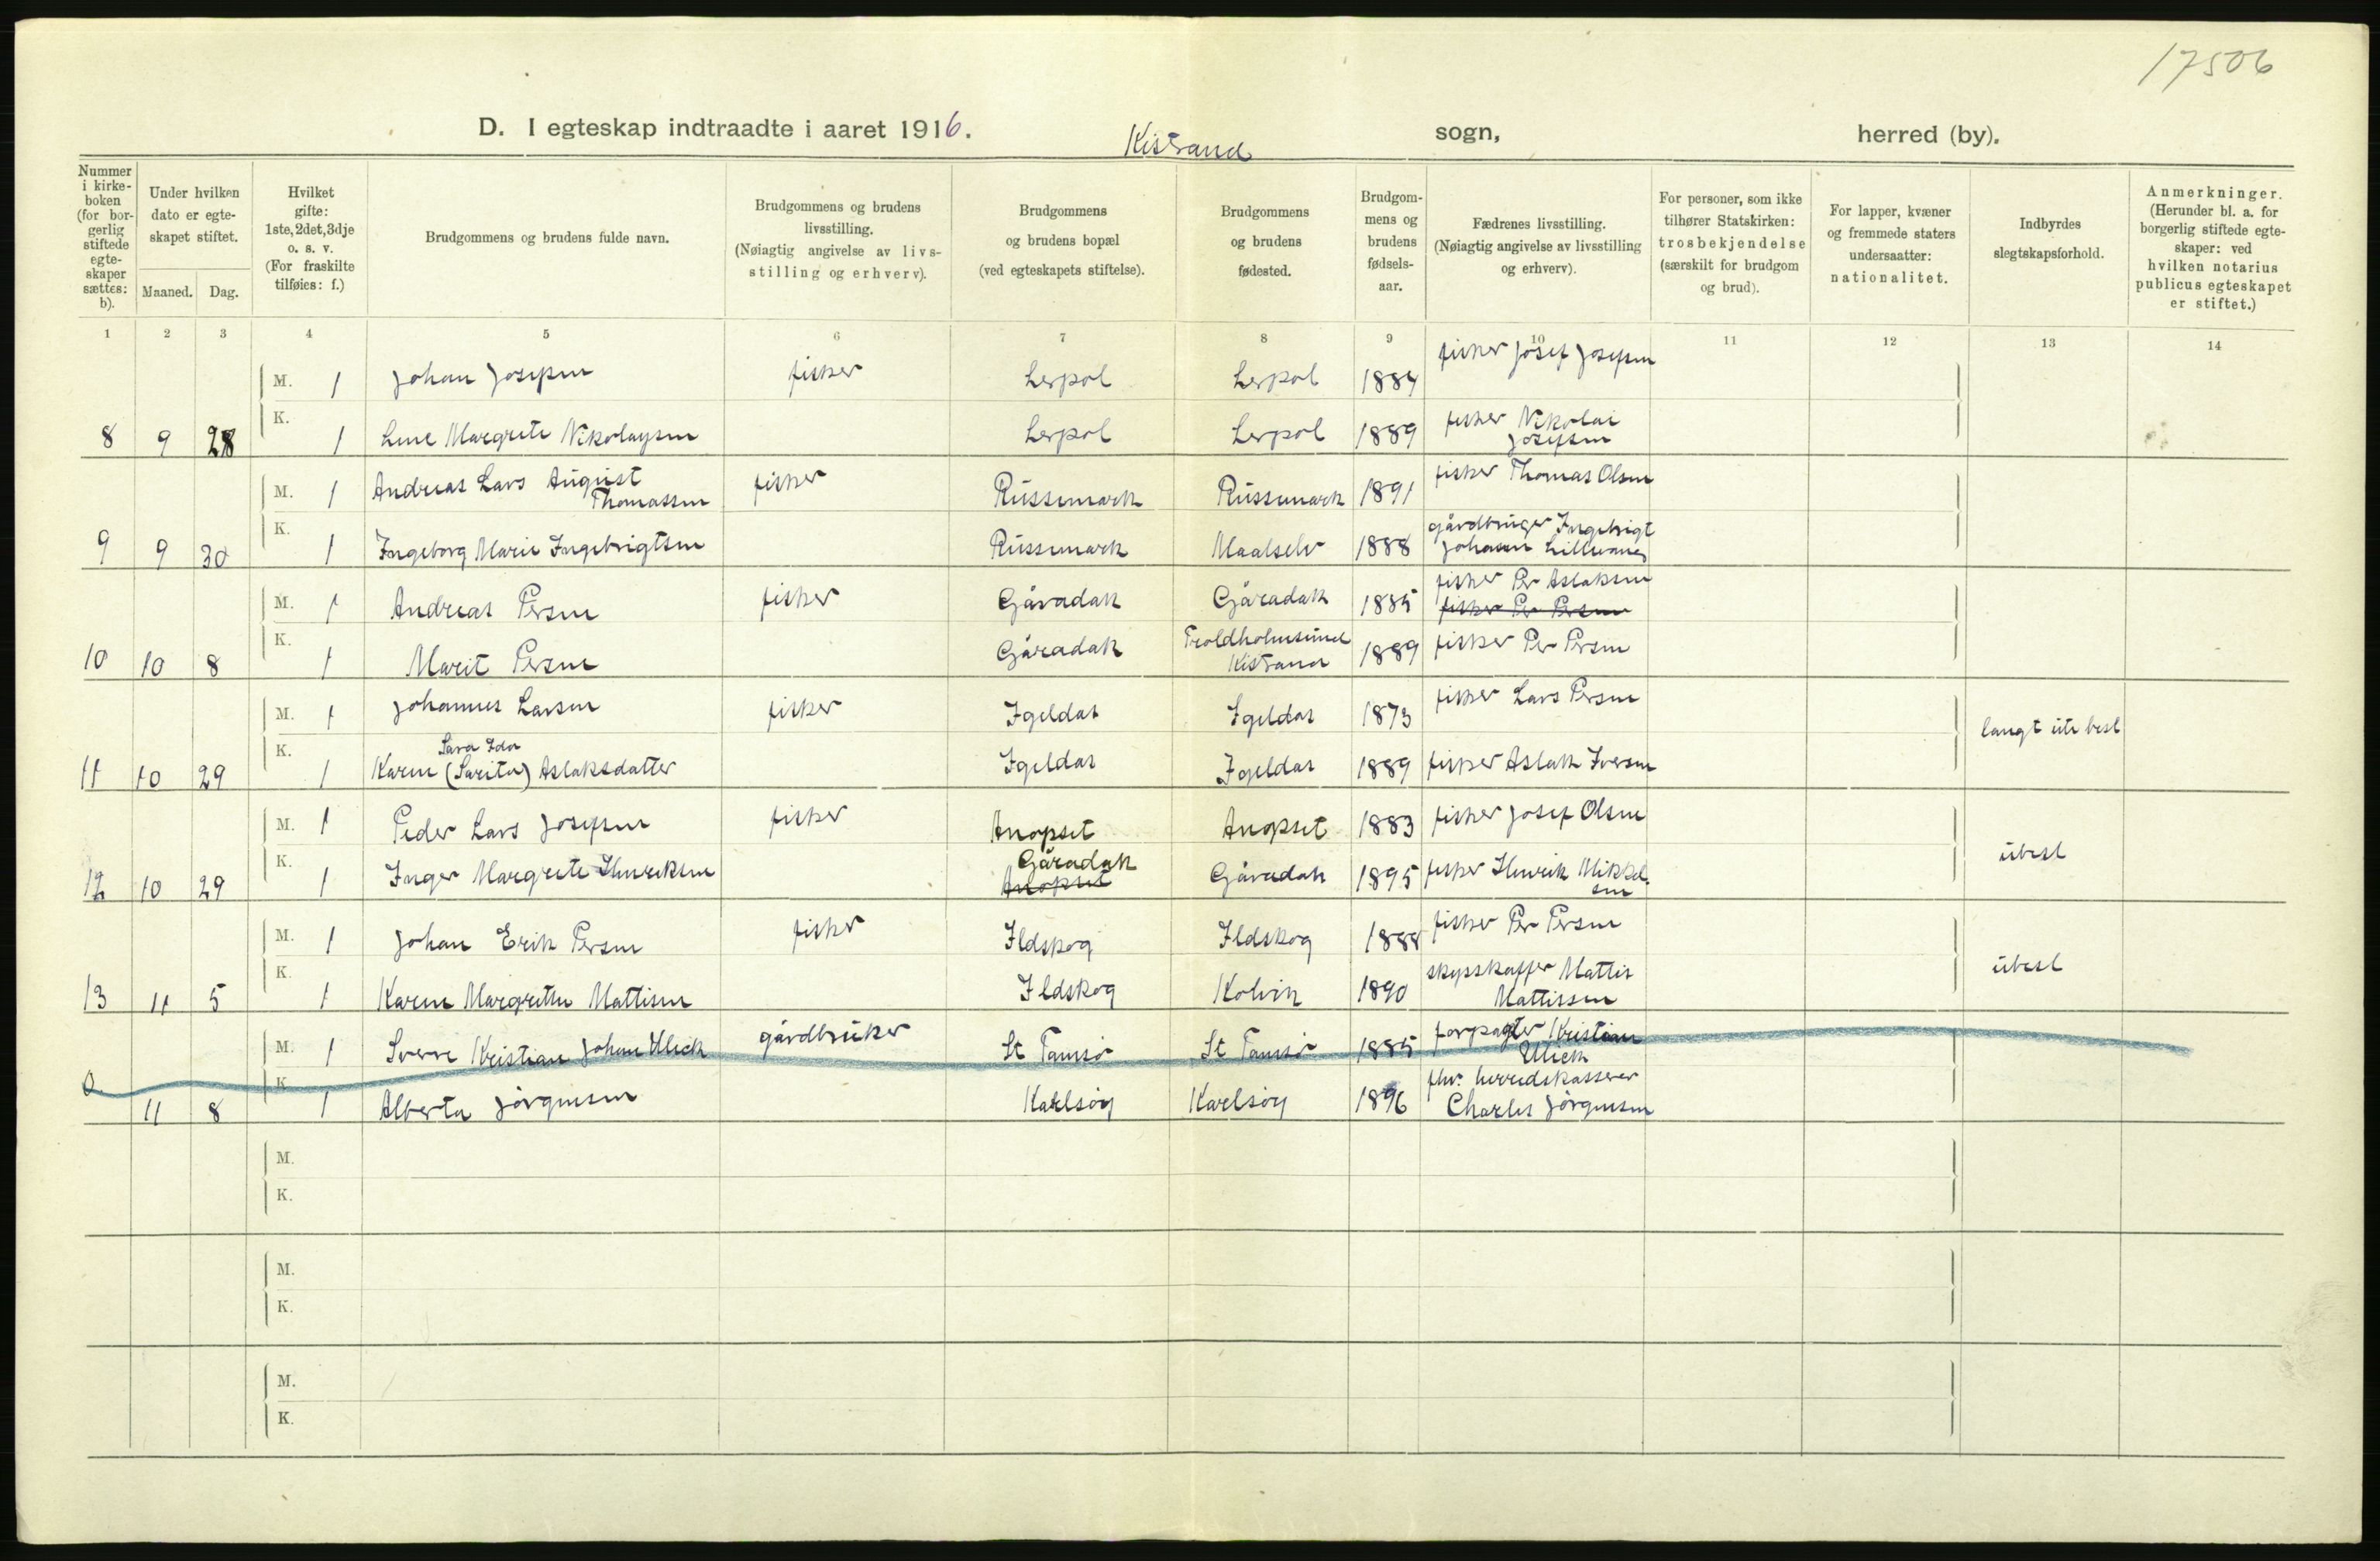 17506
D. I egteskap indtraadte i aaret 1916. Kistrand sogn, herred (by).
Nummer i kirke- boken (for bor- gerlig stiftede egte- skaper sættes: b).
Under hvilken dato er egte- skapet stiftet.
Maaned. Dag.
Hvilket gifte: 1ste, 2det, 3dje o. s. v. (For fraskilte tilføies: f.)
Brudgommens og brudens fulde navn.
Brudgommens og brudens livsstilling. (Nøiagtig angivelse av livs- stilling og erhverv).
Brudgommens og brudens bopæl (ved egteskapets stiftelse).
Brudgommens og brudens fødested.
Brudgom- mens og brudens fødsels- aar.
Fædrenes livsstilling. (Nøiagtig angivelse av livsstilling og erhverv).
For personer, som ikke tilhører Statskirken: trosbekjendelse (særskilt for brudgom og brud).
For lapper, kvæner og fremmede staters undersaatter: nationalitet.
Indbyrdes slegtskapsforhold.
Anmerkninger. (Herunder bl. a. for borgerlig stiftede egte- skaper: ved hvilken notarius publicus egteskapet er stiftet.)
1 2 3 4 5 6 7 8 9 10 11 12 13 14
M. 1 Johan Josefsen fisker Lerpol Lerpol 1884 fisker Josef Josefsen
8 9 28 K. 1 Lene Margrete Nikolaysen Lerpol Lerpol 1889 fisker Nikolai Josefsen
M. 1 Andreas Lars August Thomassen fisker Russemark Russemark 1891 fisker Thomas Olsen
9 9 30 K. 1 Ingeborg Marie Ingebrigtsen Russemark Maalselv 1888 gårdbruger Ingebrigt Johansen
M. 1 Andreas Persen fisker Gåradak Gåradak 1885 fisker Per Aslaksen
fisker Per Persen
10 10 8 K. 1 Marit Persen Gåradak Troldholmsund Kistrand 1889 fisker Per Persen
M. 1 Johannes Larsen fisker Igeldas Igeldas 1873 fisker Lars Persen
langt ute besl
11 10 29 K. 1 Karen (Sarita) Sara Ida Aslaksdatter Igeldas Igeldas 1889 fisker Aslak Iversen
M. 1 Peder Lars Josefsen fisker Anopset Anopset 1883 fisker Josef Olsen
ubesl
12 10 29 K. 1 Inger Margrete Henriksen Gåradak Anopset Gåradak 1895 fisker Henrik Mikkel- sen
M. 1 Johan Erik Persen fisker Ildskog Ildskog 1888 fisker Per Persen
ubesl
13 11 5 K. 1 Karen Margrethe Mattisen Ildskog Kolvik 1890 skysskaffer Mattis Mattissen
M. 1 Sverre Kristian Johan Ulich gårdbruker St Tamsø St Tamsø 1885 forpagter Kristian Ulich
0 11 8 K. 1 Alberta Jörgensen Karlsøy Karlsøy 1896 fhv. herredskasserer Charles Jörgensen
M.
K.
M.
K.
M.
K.